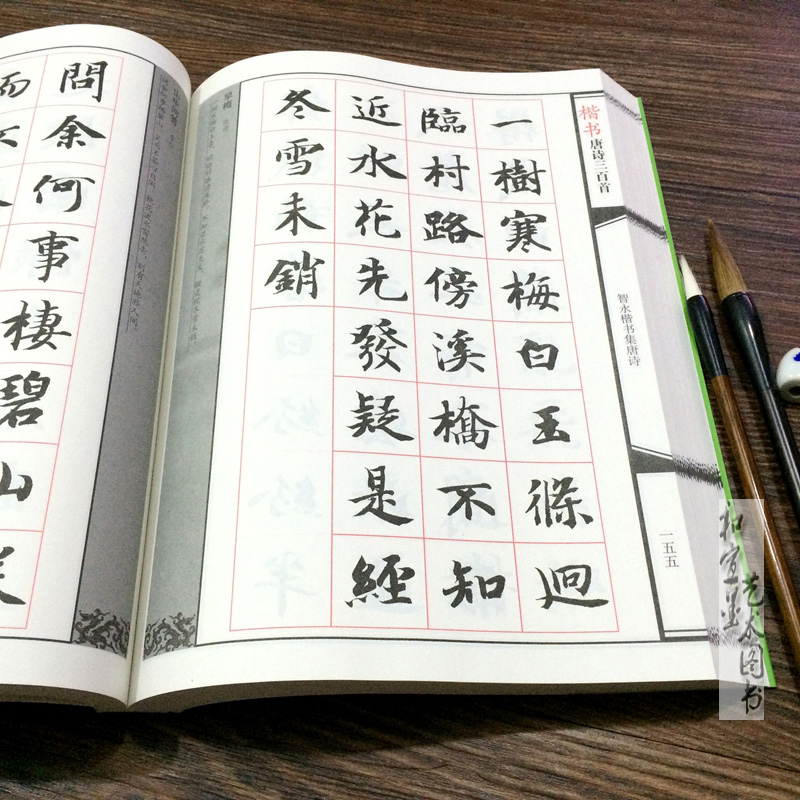 楷书唐诗三百首
智永楷书集唐诗
一五五
一樹寒梅白玉條迥
臨村路傍溪橋不知
近水花先發疑是經
冬雪未銷
早梅
問余何事棲碧山笑
而
艺术图书